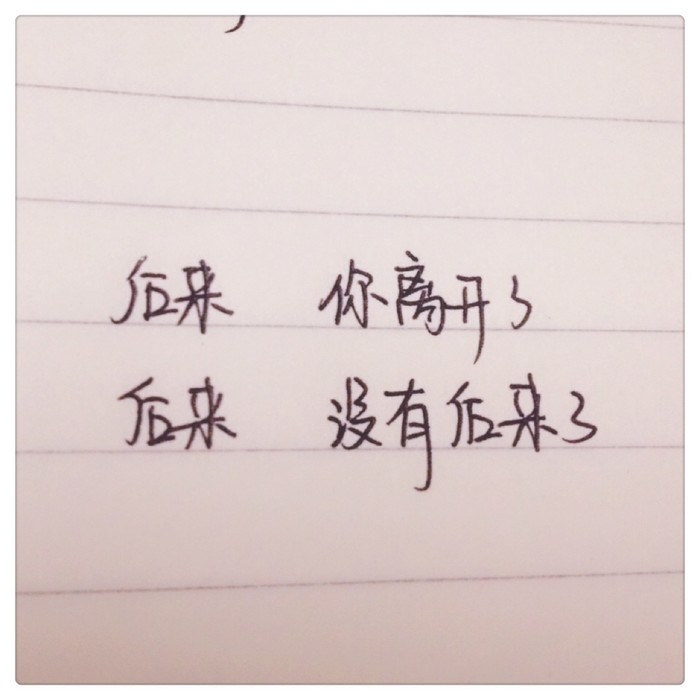 后来 你离开了
后来 没有后来了